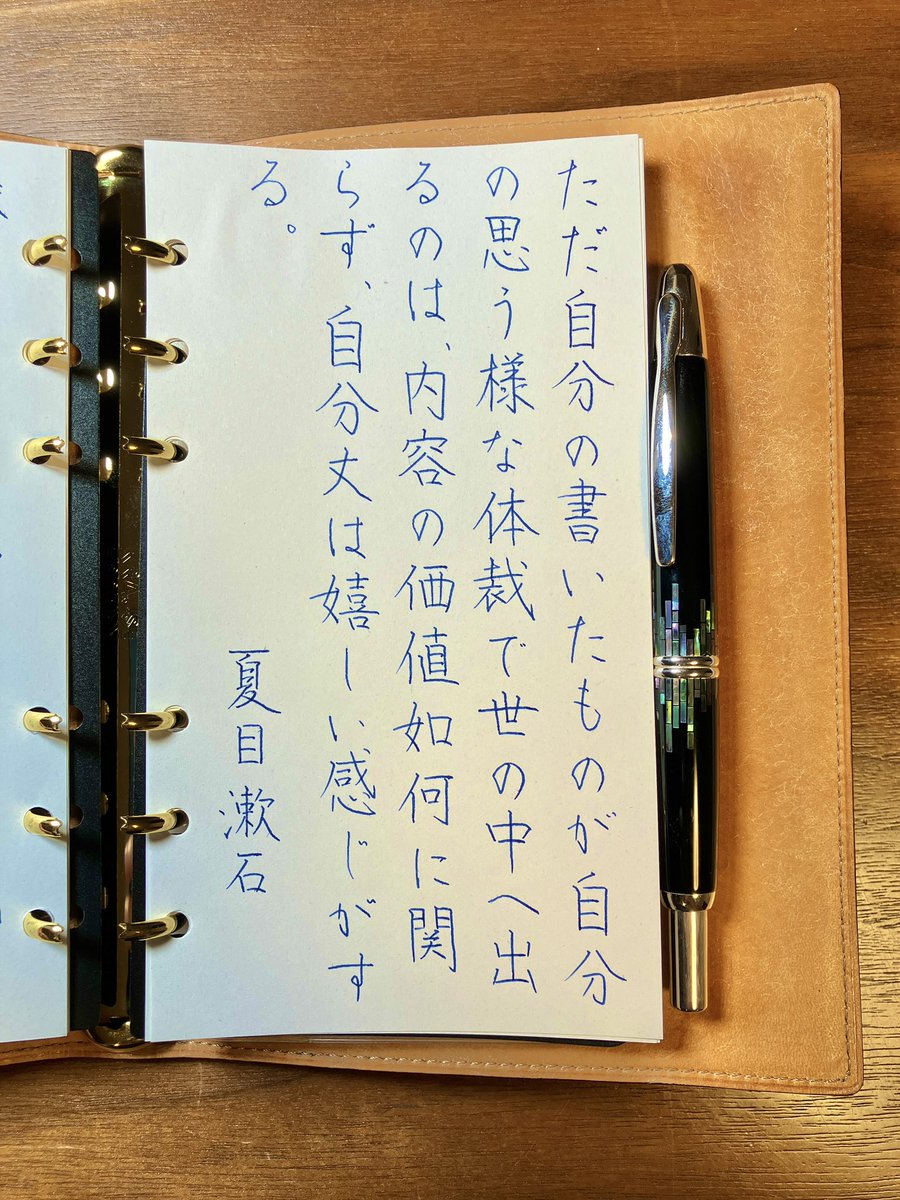 ただ自分の書いたものが自分
の思う様な体裁で世の中へ出
るのは、内容の価値如何に関
らず、自分丈は嬉しい感じがす
る。
夏目漱石